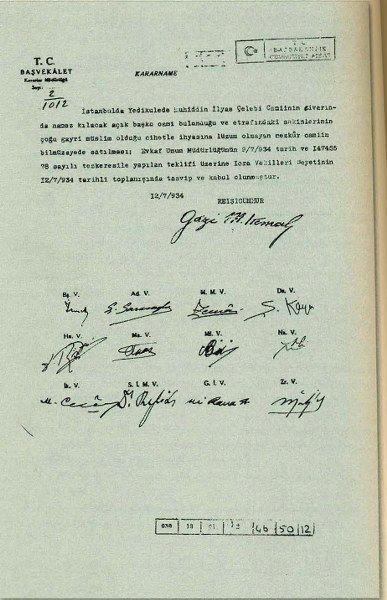 T. C.
BAŞVEKÂLET
Kararlar Müdürlüğü
Sayı
2
1012
KARARNAME
T C
BAŞBAKANLIK
CUMHURİYET ARŞİVİ
İstanbulda Yedikulede Muhiddin İlyas Çelebi Camiinin civarın-
da namaz kılacak açık başka cami bulunduğu ve etrafındaki sakinlerinin
çoğu gayri müslim olduğu cihetle ihyasına lüzum olmayan mezkûr camiin
bilmüzayede satılması; Evkaf Umum Müdürlüğünün 9/7/934 tarih ve 147435
78 sayılı tezkeresile yapılan teklifi üzerine İcra Vekilleri Heyetinin
12/7/934 tarihli toplanışında tasvip ve kabul olunmuştur.
12/7/934 REİSİCUMHUR
Gazi M. Kemal
Bş. V. Ad. V. M. M. V. Da. V.
Ş. Kaya
Ha. V. Ma. V. Mf. V. Na. V.
İk. V. S. İ. M. V. G. İ. V. Zr. V.
030 18 01 46 50 12